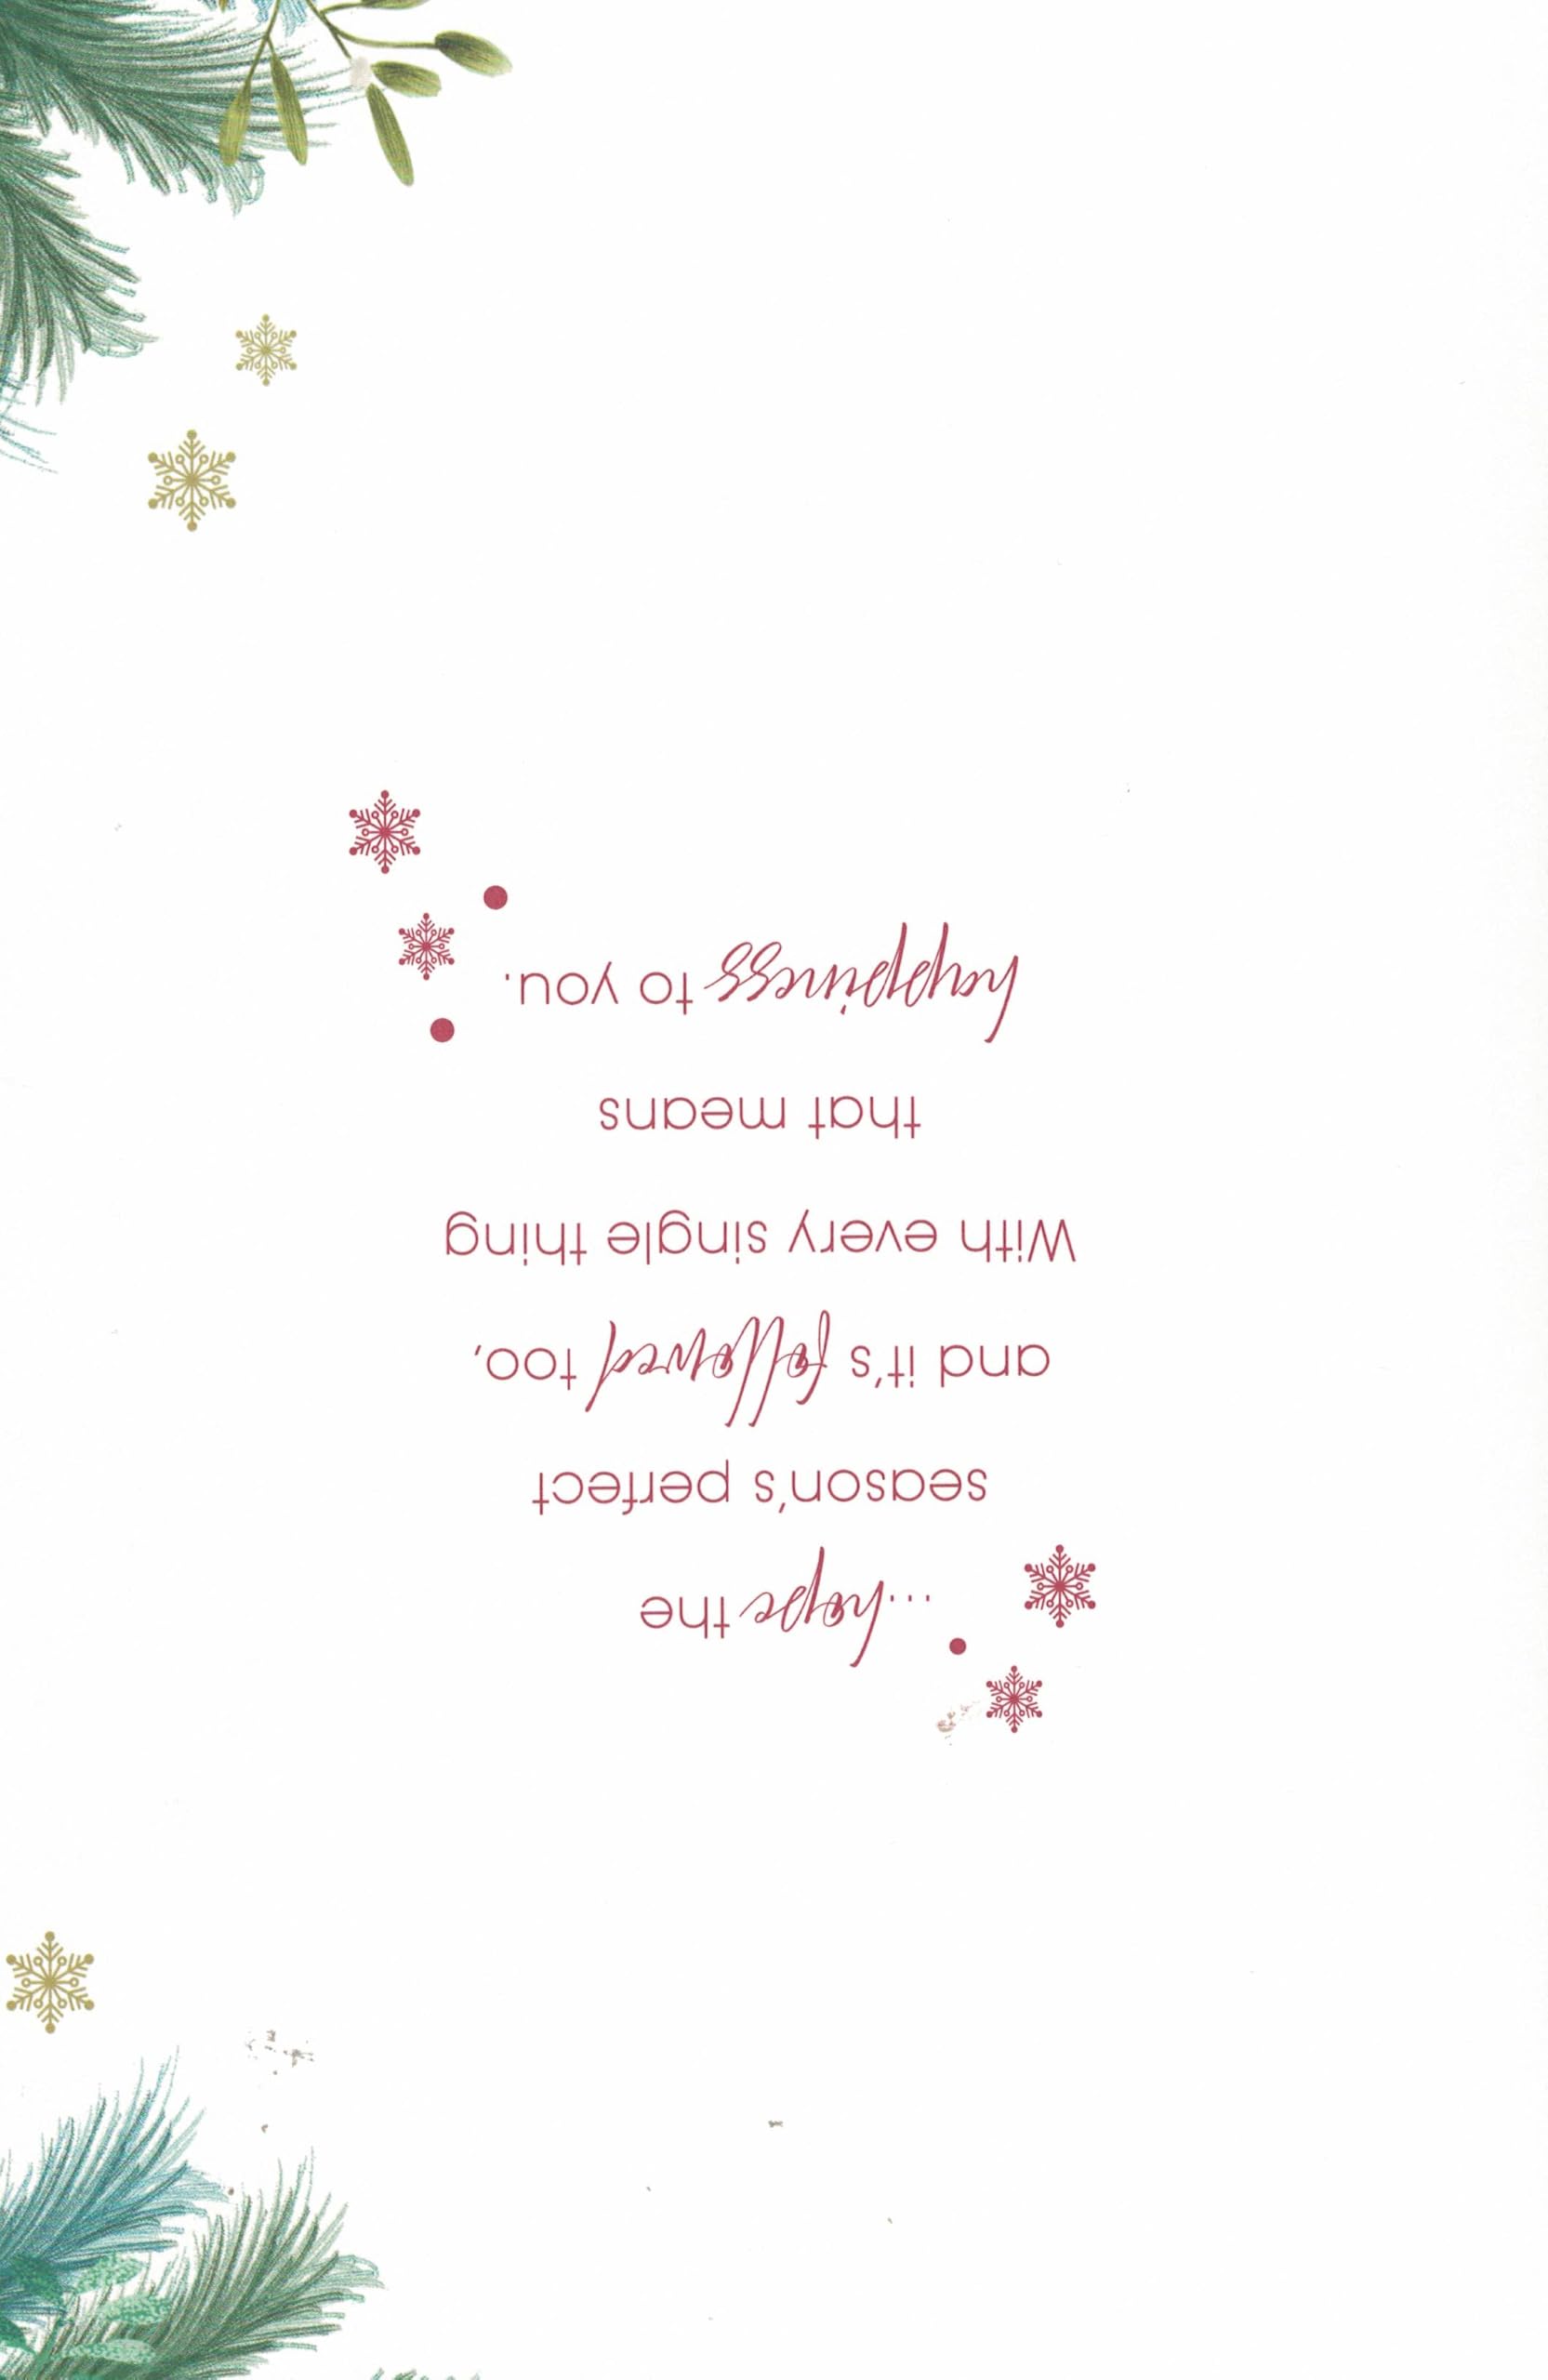 ...hope the
season's perfect
and it's followed too,
With every single thing
that means
happiness to you.